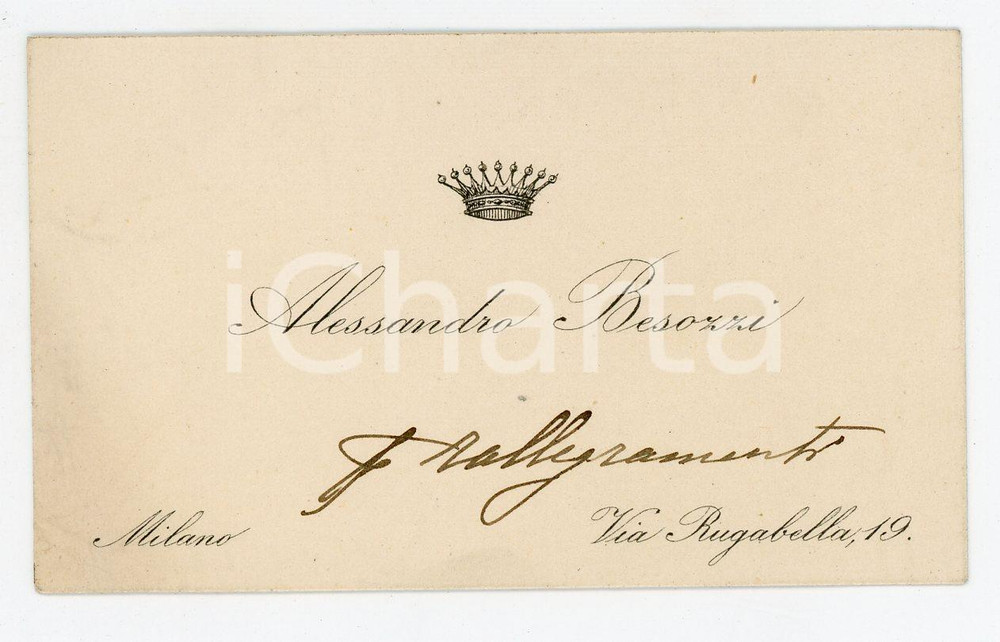 Alessandro Besozzi
iCharta
p rallegramenti
Milano
Via Rugabella, 19.